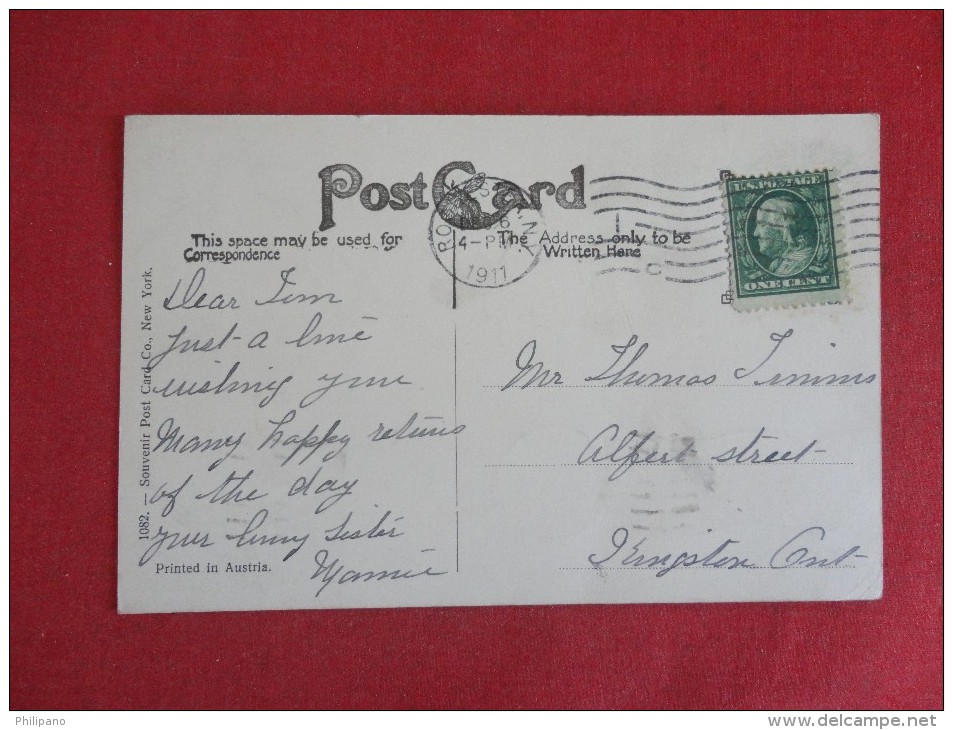 Post Card
This space may be used for
Correspondence
The Address only to be
Written Here
4-P
1911
U.S. POSTAGE
ONE CENT
1082. — Souvenir Post Card Co., New York.
Dear Tom
Just a line
wishing you
Many happy returns
of the day
your loving sister
Mamie
Printed in Austria.
Mr Thomas Timms
Alfert street
Kingston Ont
Philipano
www.delcampe.net